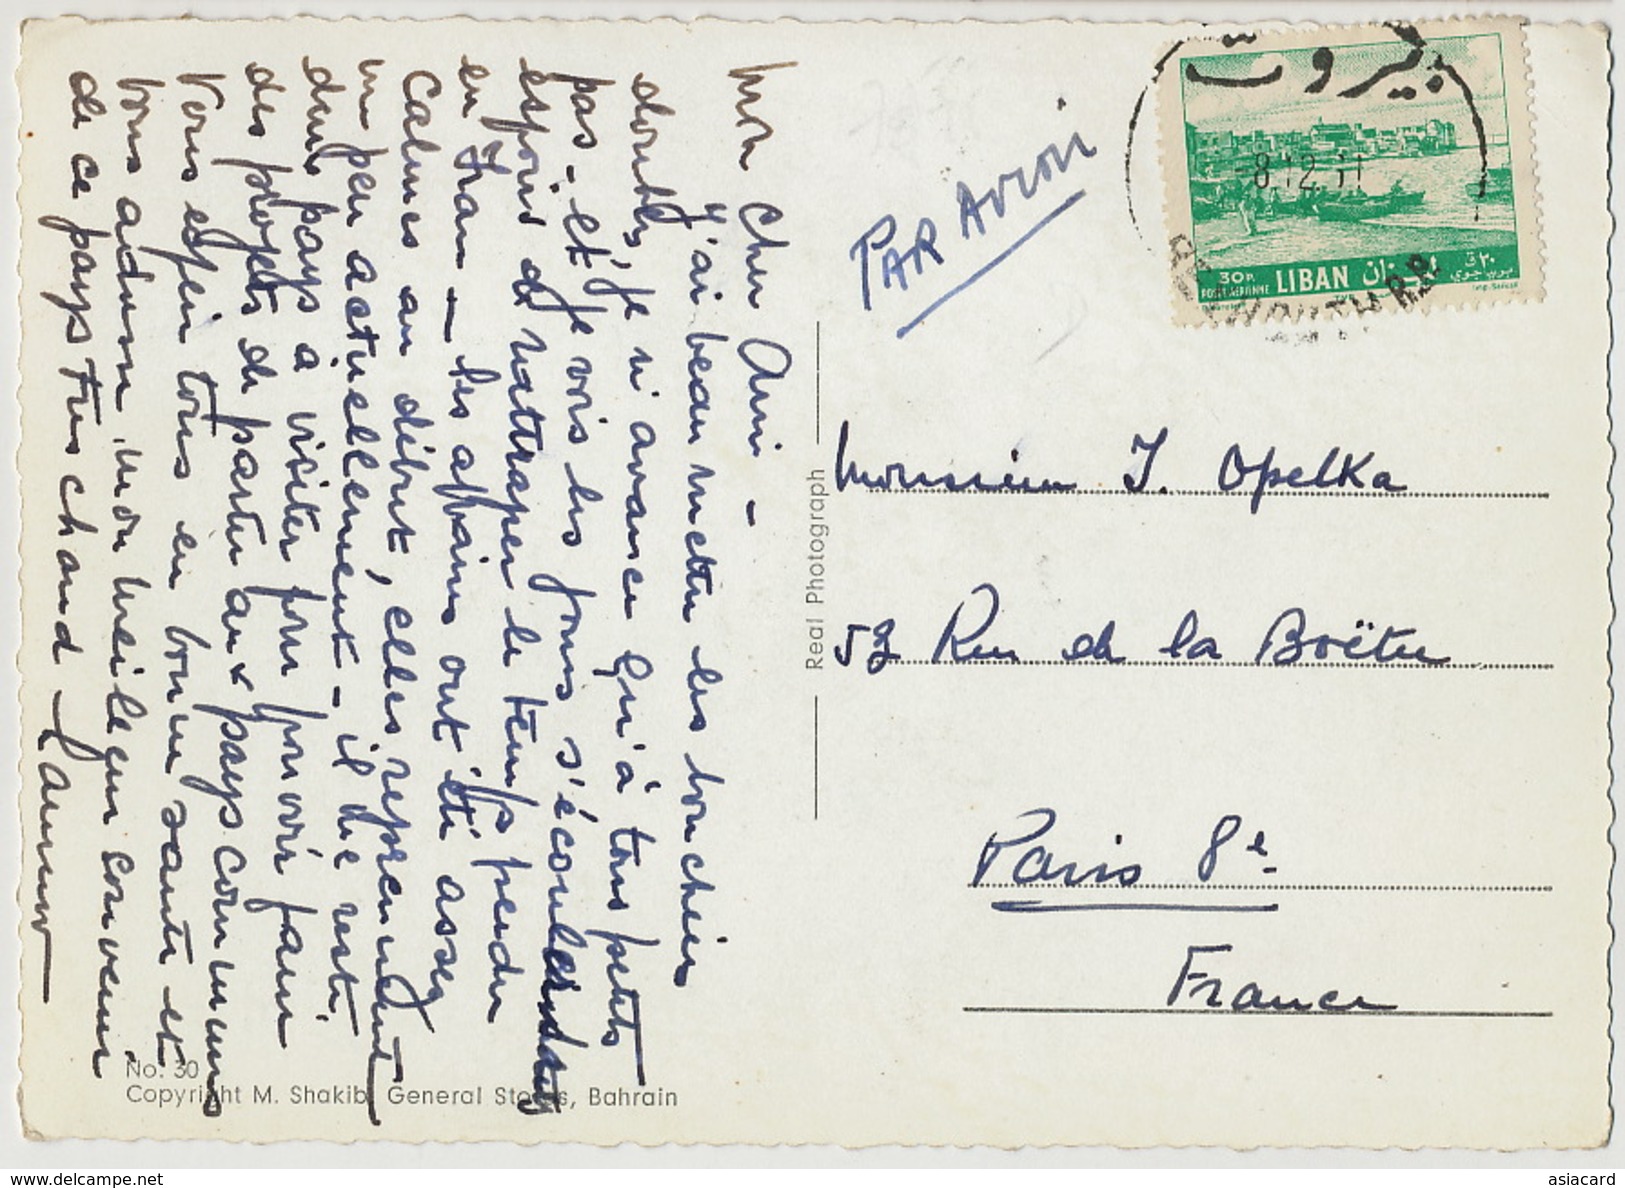 Mon cher Ami -
J'ai beau mettre les bouchées
doubles, je n'avance qu'à tous petits
pas - et je vois les jours s'écouler
espoir de rattraper le temps perdu
en Iran - les affaires ont été assez
calmes au début, elles reprennent
un peu actuellement - il me reste
deux pays à visiter pour pouvoir faire
des projets de
Vous espère tous en bonne santé et
vous adresse mon meilleur souvenir
de ce pays très chaud -
No. 30
Copyright M. Shakib, General Stores, Bahrain
Real Photograph
PAR AVION
بيروت
8.12.61
BEYROUTH R.P.
30 P.
POSTE AERIENNE
LIBAN
لبنان
٣٠ ق
بريد جوي
Monsieur J. Opelka
52 Rue de la Boëtie
Paris 8e
France
asiacard